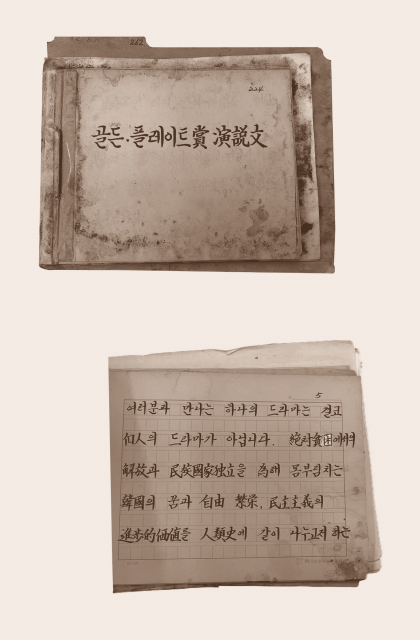 224
골든·플레이트賞 演説文
5
여러분과 만나는 하나의 드라마는 결코
個人의 드라마가 아닙니다. 絶対貧困에서의
解放과 民族國家独立을 為해 몸부림치는
韓國의 꿈과 自由 繁栄, 民主主義의
進歩的価値를 人類史에 같이 나누고저 하는